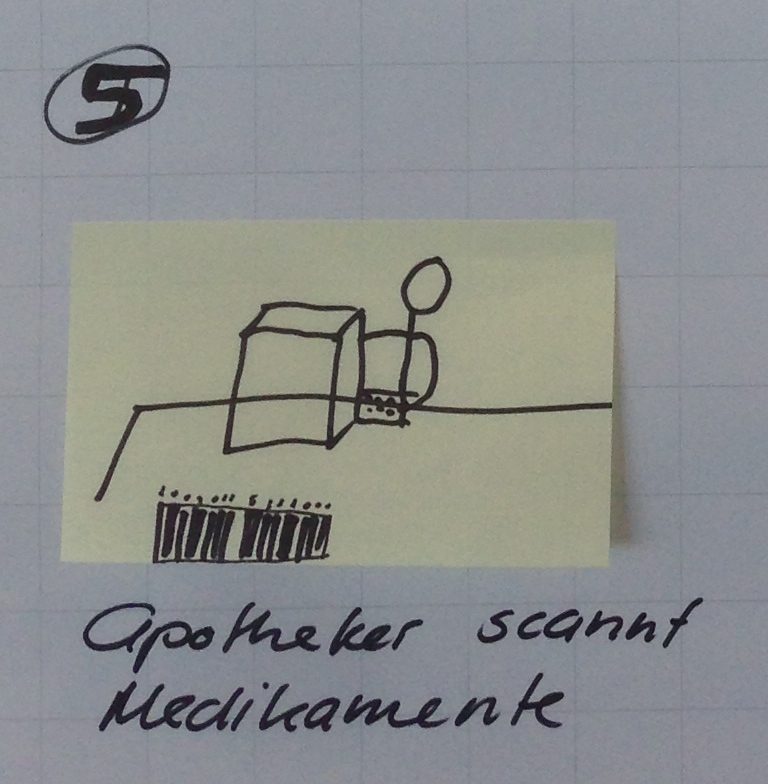 5
Apotheker scannt
Medikamente